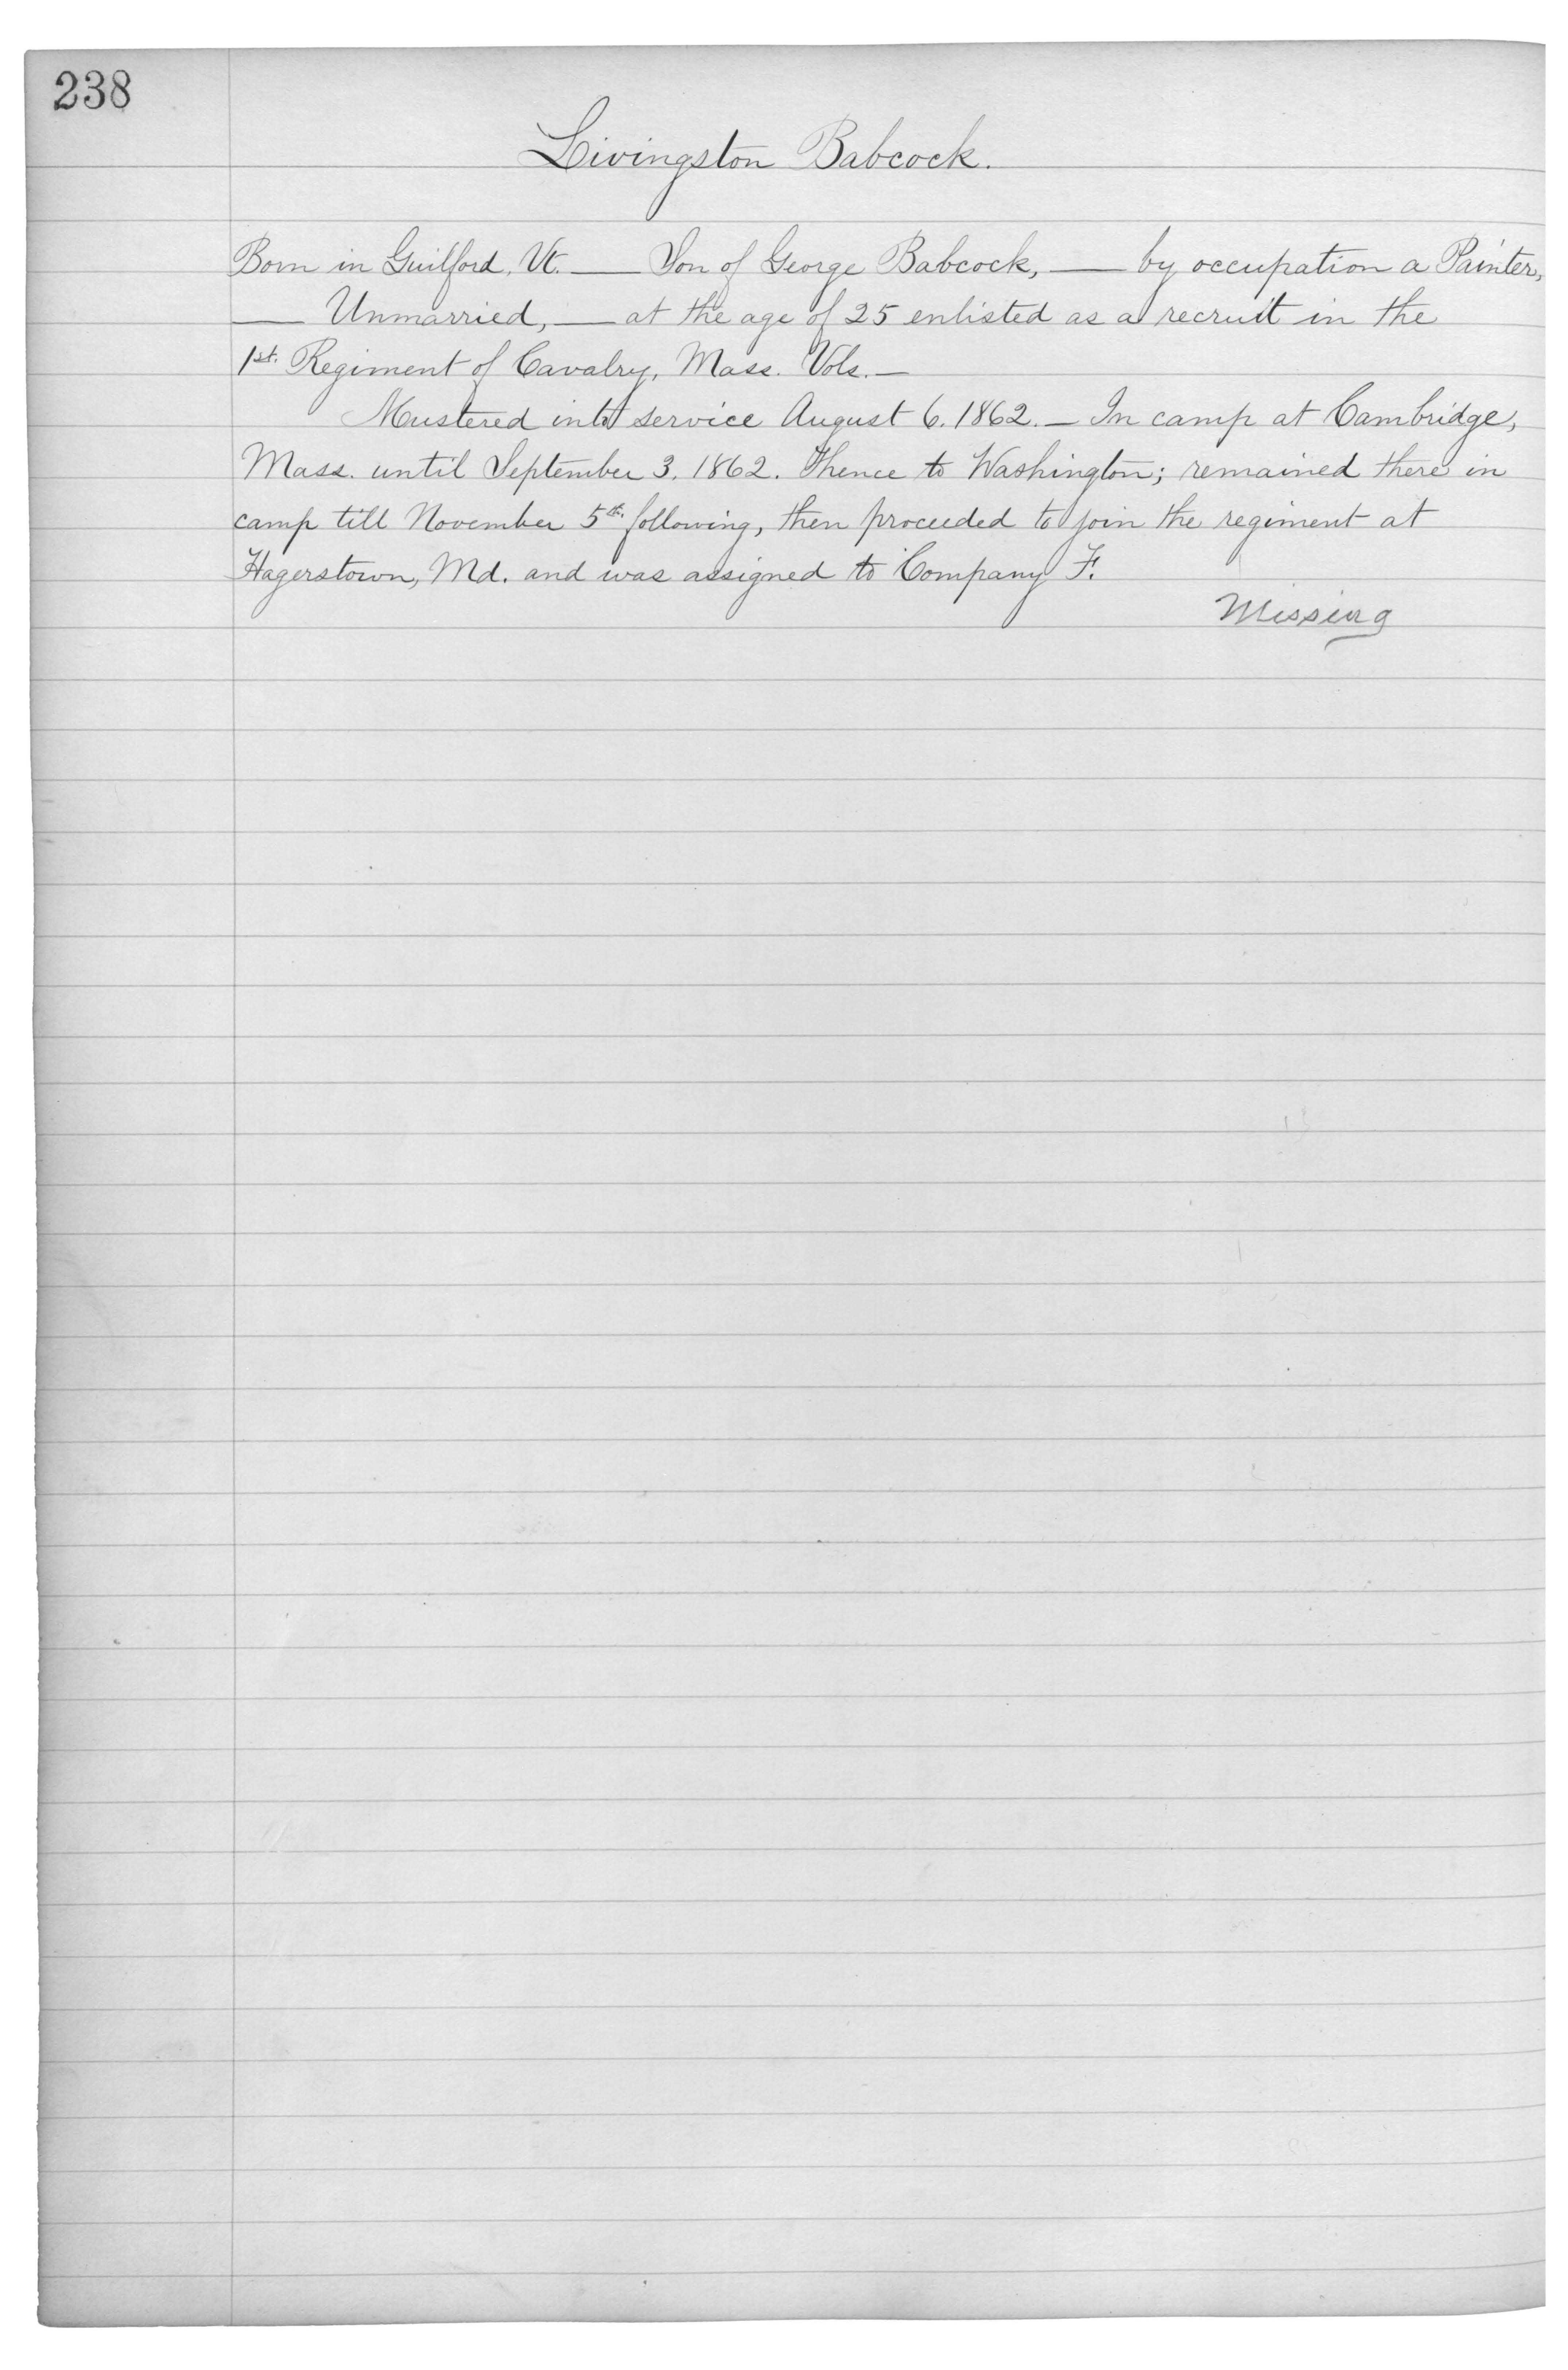 238
Livingston Babcock.
Born in Guilford, Vt. — Son of George Babcock, — by occupation a Painter,
— Unmarried, — at the age of 25 enlisted as a recruit in the
1st. Regiment of Cavalry, Mass. Vols. —
Mustered into service August 6. 1862. — In camp at Cambridge,
Mass. until September 3. 1862. Thence to Washington; remained there in
camp till November 5th. following, then proceeded to join the regiment at
Hagerstown, Md. and was assigned to Company F.
Missing